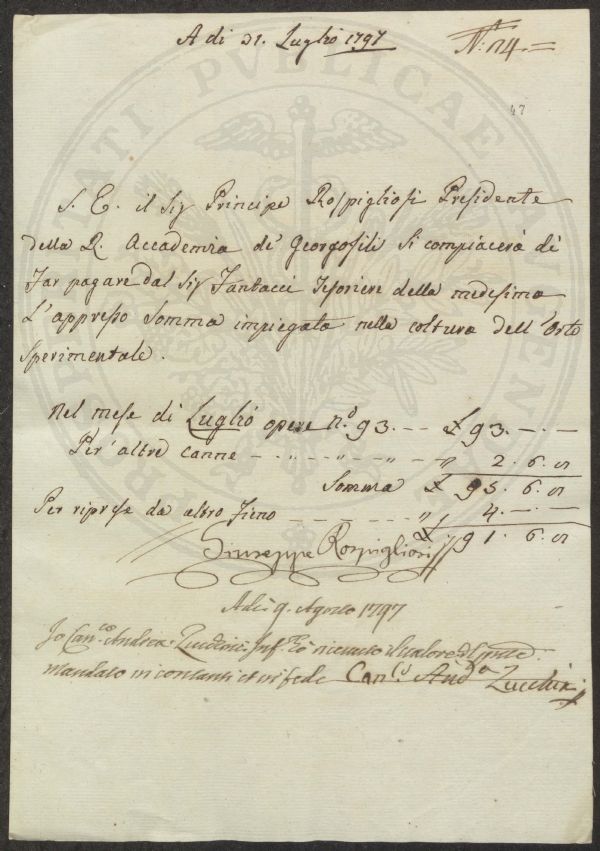 A di 31. Luglio 1797
N.° 114. =
47
S. E. il Sig Principe Rospigliosi Presidente
della R. Accademia de' Georgofili si compiacerà di
far pagare dal Sig Fantacci Tesoriere della medesima
L'appresso Somma impiegata nella coltura dell'Orto
Sperimentale.
Nel mese di Luglio opere n.° 93. -- £ 93. -. -
Per altre canne - - - - - " 2. 6. 8
Somma £ 95. 6. 8
Per riprese da altro Fieno - - - - " 4. -. -
£ 91. 6. 8
Giuseppe Rospigliosi
Adi 9. Agosto 1797
Io Can.co Andrea Zucchini ho ricevuto il valore del
mandato in contanti et in fede Can.co And.a Zucchini
PUBLICAE